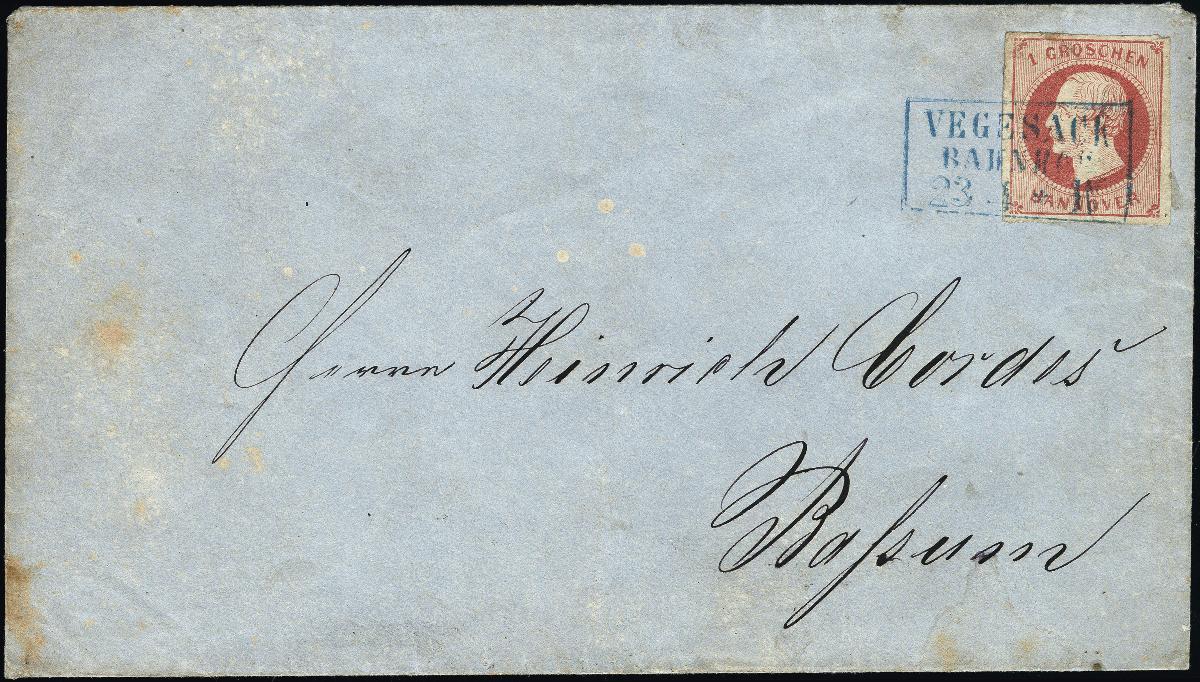 1 GROSCHEN
HANNOVER
VEGESACK
BAHNHOF
23
Herrn Heinrich Cordes
Baſsum